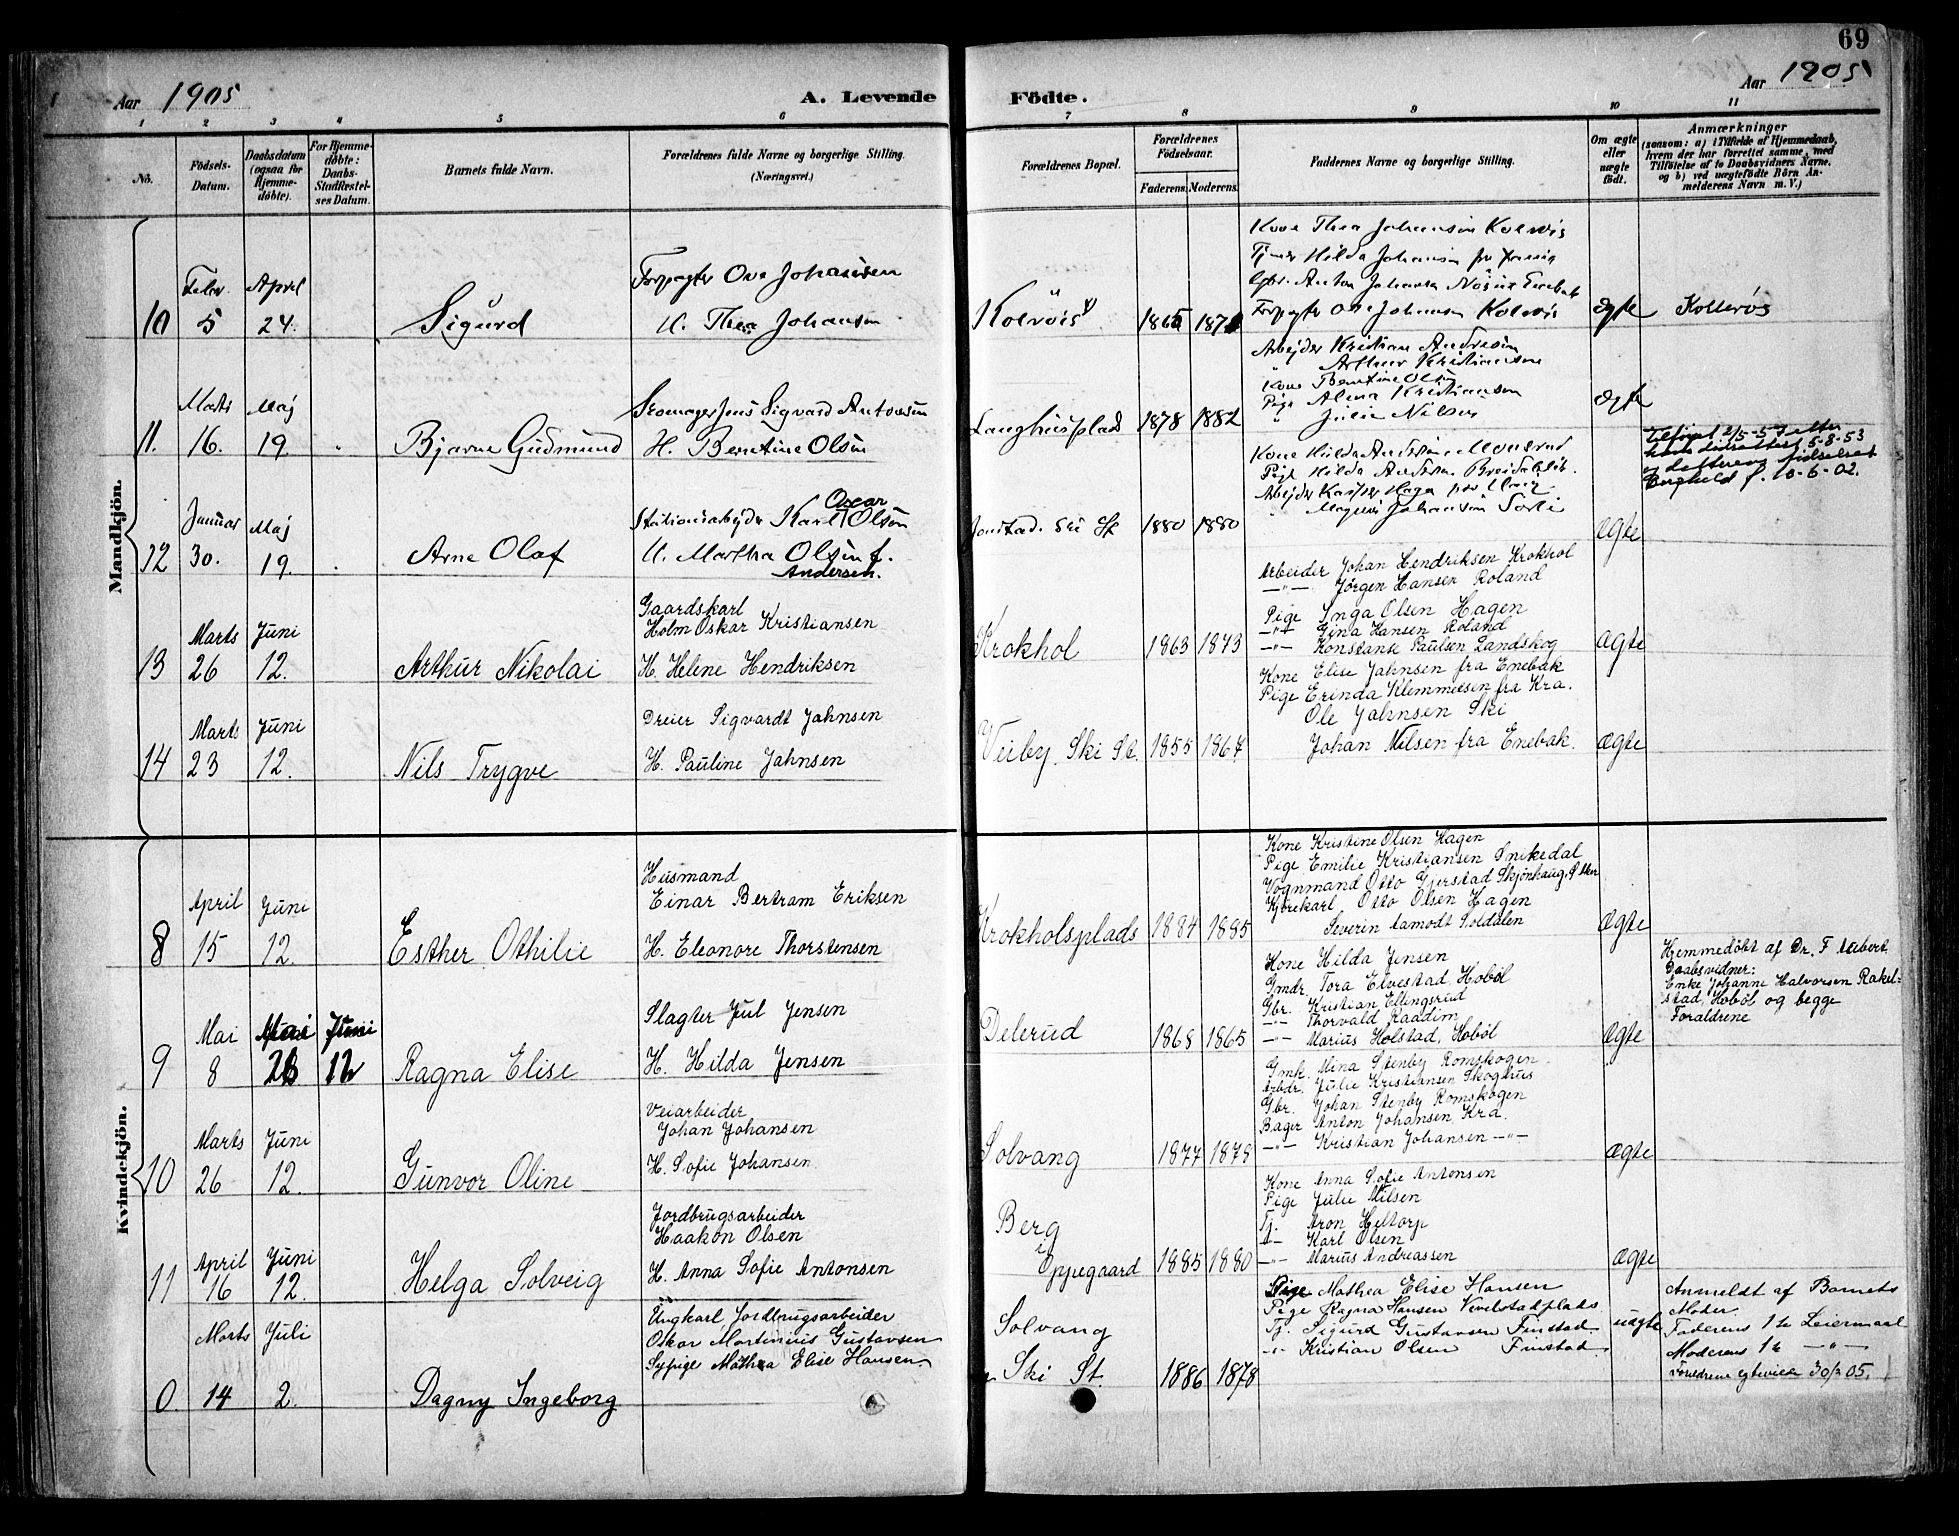 69
Aar 1905
A. Levende Födte.
Aar 1905
1 2 3 4 5 6 7 8 9 10 11
No.
Födsels-Datum.
Daabsdatum (ogsaa for Hjemmedöbte).
For Hjemmedöbte: Daabs-Stadfestelses Datum.
Barnets fulde Navn.
Forældrenes fulde Navne og borgerlige Stilling.
(Næringsvei.)
Forældrenes Bopæl.
Forældrenes Födselsaar.
Faderens. Moderens.
Faddernes Navne og borgerlige Stilling.
Om ægte eller uægte födt.
Anmærkninger
(saasom: a) i Tilfælde af Hjemmedaab, hvem der har forrettet samme, med Tilföielse af to Daabsvidners Navne, og b) ved uægtefödte Börn Anmelderens Navn m. V.)
Mandkjön.
10
Febr. 5
April 24.
Sigurd
Forpagter Ove Johansen
H. Thea Johansen
1865 1871
Kone Thea Johansen
Hilda Johansen
Gbr. Anton Johansen
Forpagter Ove Johansen
ægte
11.
Marts 16.
Maj 19.
Bjarne Gudmund
Skomager Jens Sigvard Antonsen
H. Berntine Olsen
Langhusplads
1878 1882
Arbejder Kristian Andresen
" Arthur Kristiansen
Kone Berntine Olsen
Pige Alma Kristiansen
" Julie Nilsen
ægte
12
Januar 30.
Maj 19.
Arne Olaf
Stationsarbejder Karl Oscar Olsen
H. Martha Olsen f. Andersen.
Ski St
1880 1880
Kone Hilda Andersen
Pige Hilda Andersen
Arbejder Kasper Hagen
" Magnus Johansen
ægte
5-8-53
f. 10-6-02.
13
Marts 26
Juni 12.
Arthur Nikolai
Gaardskarl
Holm Oskar Kristiansen
H. Helene Hendriksen
Krokhol
1863 1873
Arbeider Johan Hendriksen Krokhol
—"— Jörgen Hansen Roland
Pige Inga Olsen Hagen
—"— Gina Hansen Roland
—"— Konstanse Paulsen Landskog
ægte
14
Marts 23
Juni 12.
Nils Trygve
Dreier Sigvardt Jahnsen
H. Pauline Jahnsen
Veiby. Ski St.
1855 1867
Kone Elise Jahnsen fra Enebak
Pige Erinda Klemmetsen fra Kra.
Ole Jahnsen Ski
Johan Nilsen fra Enebak.
ægte
Kvindekjön.
8
April 15
Juni 12.
Esther Othilie
Husmand
Einar Bertram Eriksen
H. Eleonore Thorstensen
Krokholsplads
1884 1885
Kone Kristine Olsen Hagen
Pige Emilie Kristiansen Snikedal
Vognmand Otto Gjerstad Skjönhaug
Kjörekarl Otto Olsen Hagen
Severin
ægte
9
Mai 8
Mai
Juni 12
Ragna Elise
Slagter Jul Jensen
H. Hilda Jensen
Delerud
1868 1865
Kone Hilda Jensen
Gmdr. Tora Elvestad Hoböl
Gbr. Kristian Ellingsrud
—"— Thorvald Raadim
—"— Marius Holstad, Hoböl
ægte
Hjemmedöbt af Dr. F
Daabsvidner:
Enke Johanne Halvorsen Rakelstad, Hoböl og begge
Foraldrene
10
Marts 26
Juni 12.
Gunvor Oline
Veiarbeider
Johan Johansen
H. Sofie Johansen
Solvang
1877 1878
Gmk. Mina Stenby Romskogen
Arbdr. Julie Kristiansen Skoghus
Gbr. Johan Stenby Romskogen
Bager Anton Johansen, Kra.
—"— Kristian Johansen —"—
ægte
11
April 16
Juni 12.
Helga Solveig
Jordbrugsarbeider
Haakon Olsen
H. Anna Sofie Antonsen
Berg
i Oppegaard
1885 1880
Kone Anna Sofie Antonsen
Pige Julie Nilsen
Tj. Aron Heltorp
—"— Karl Olsen
—"— Marius Andreassen
ægte
0
Marts 14
Juli 2.
Dagny Ingeborg
Ungkarl, Jordbrugsarbeider
Oskar Martinius Gustavsen
Sypige Mathea Elise Hansen
Solvang
Ski St.
1886 1878
Pige Mathea Elise Hansen
Pige Ragna Hansen Vevelstadplads
Tj. Sigurd Gustavsen Finstad
—"— Kristian Olsen Finstad
uægte
Anmeldt af Barnets Moder.
Faderens 1ste Leiermaal
Moderens 1ste —"—